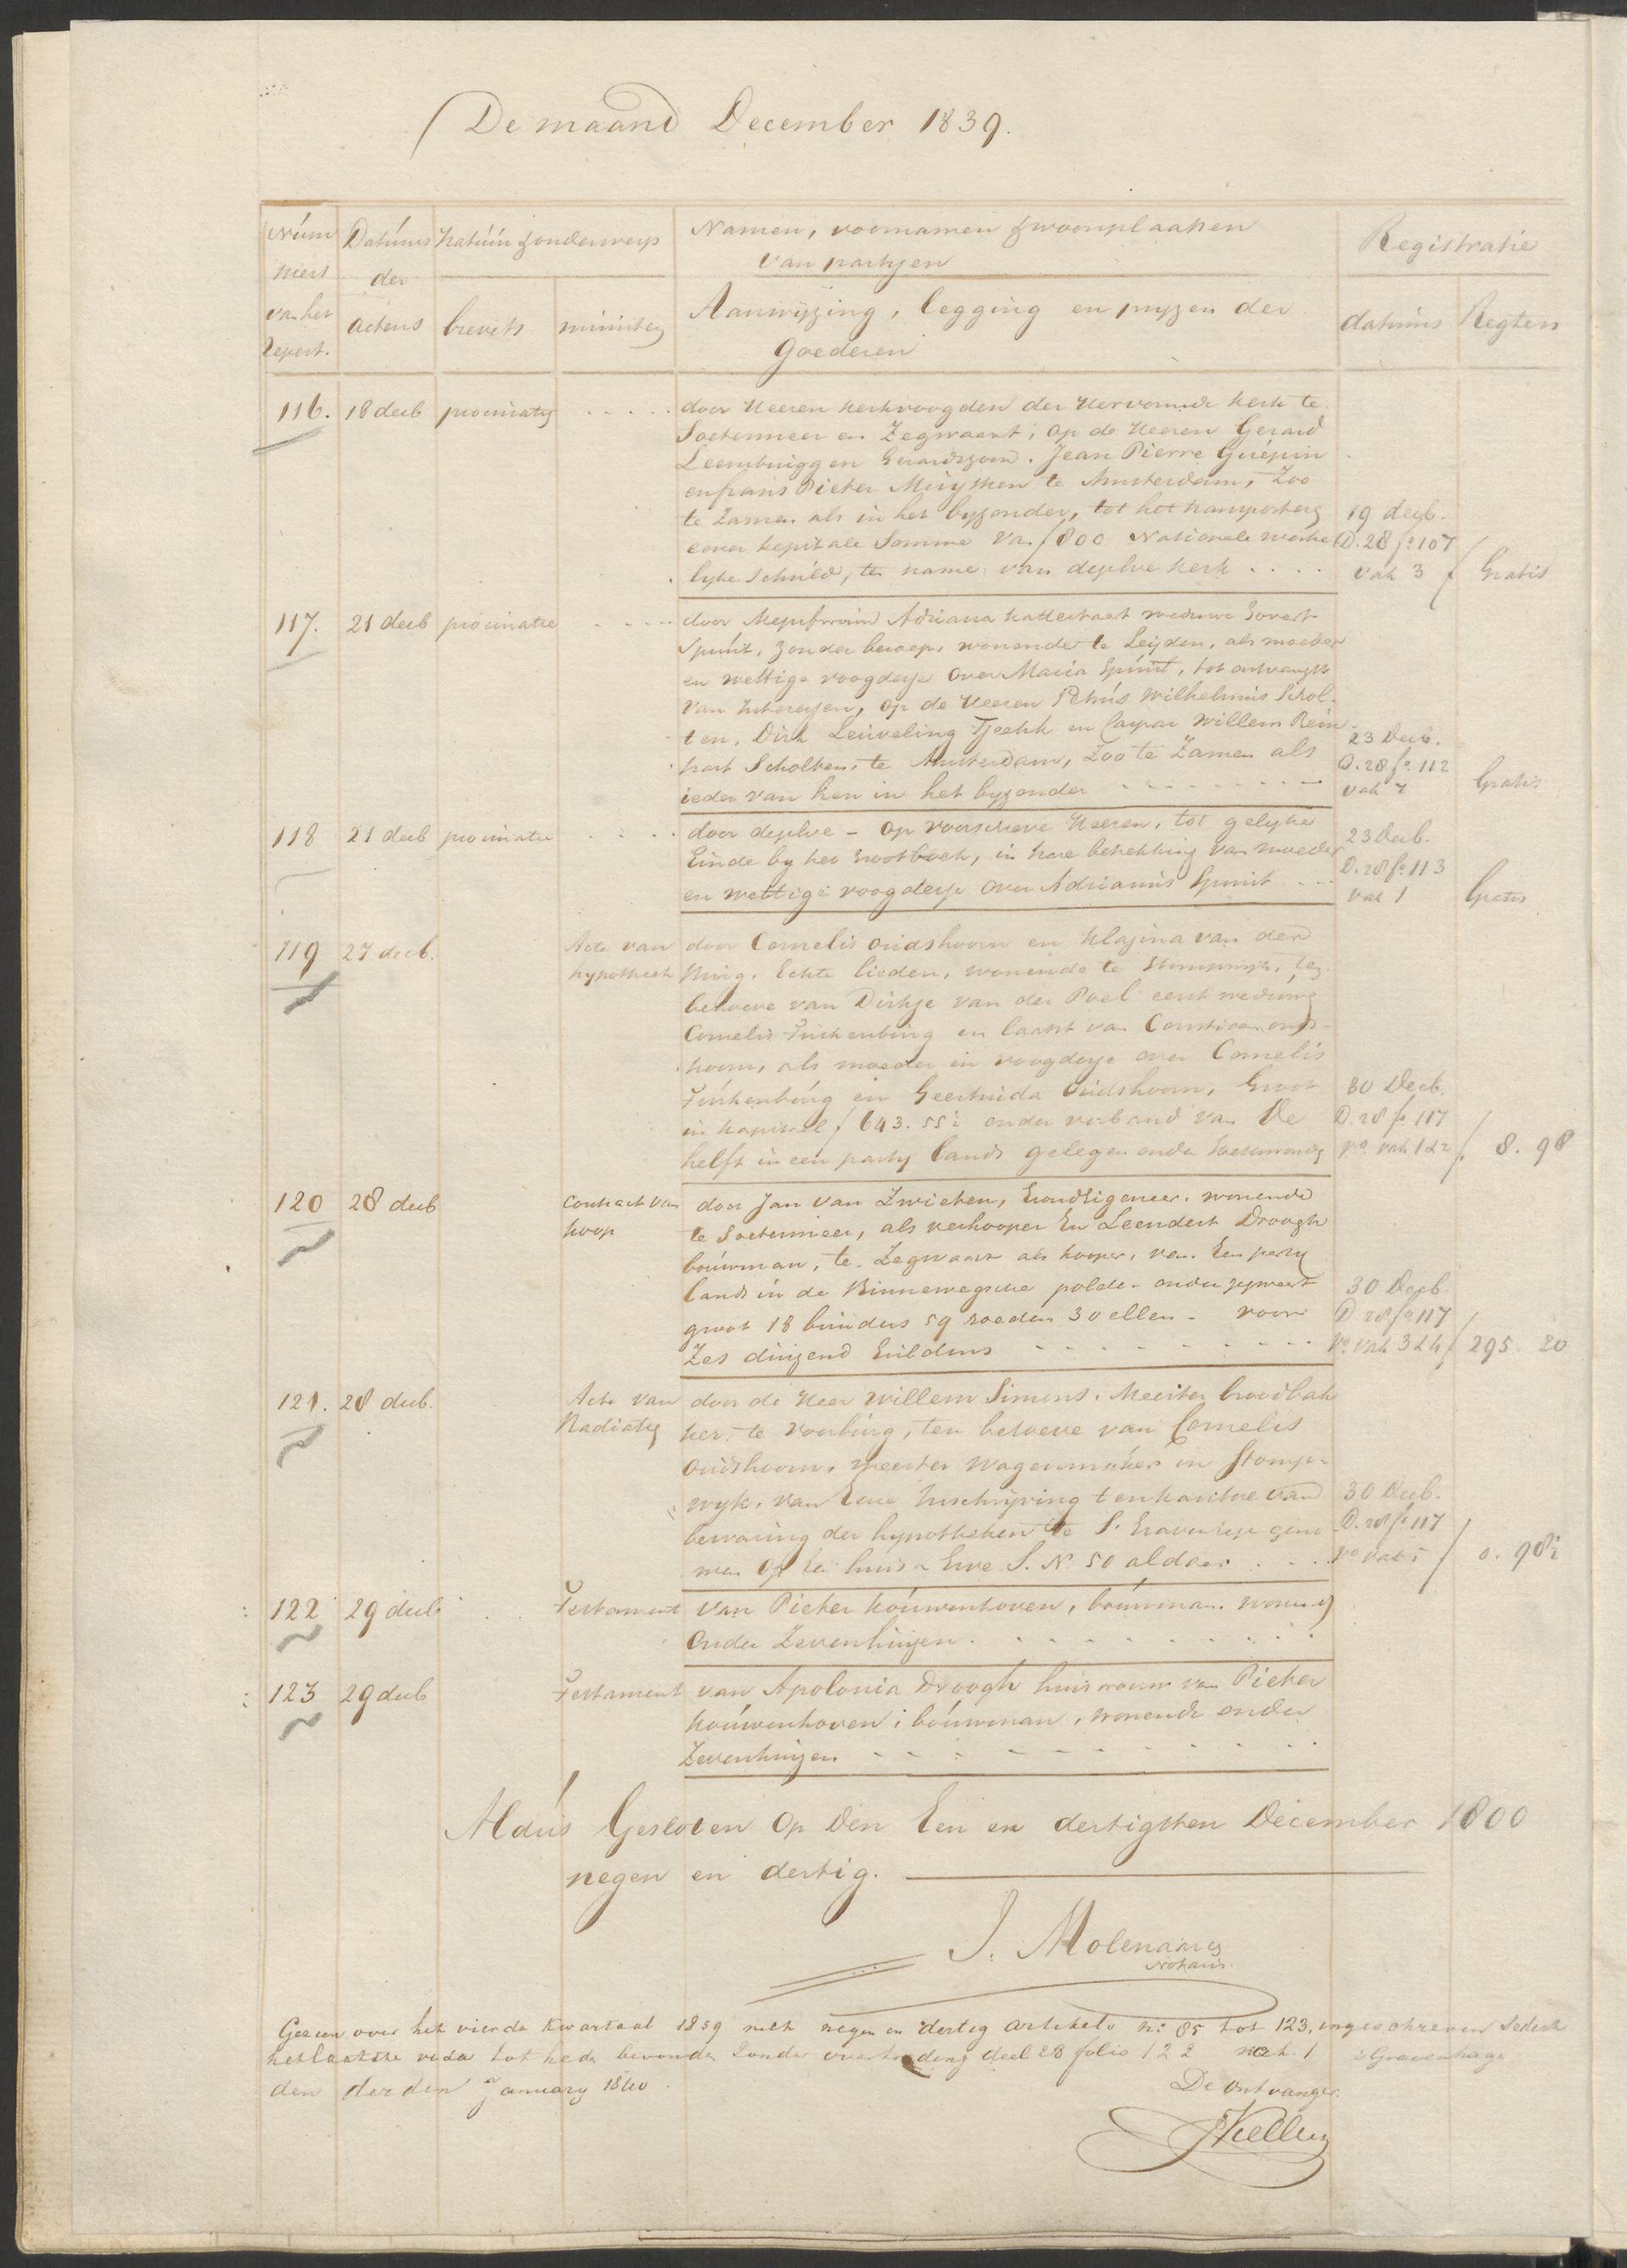 De maand December 1839.
Num
mers
van het
Repert.
Datums
der
actens
Natuur & onderwerp
brevets
minuten
Namen, voornamen & woonplaatsen
van partyen
Aanwyzing, legging en pryzen der
Goederen
Registratie
datums
Regten
116. 18 decb procuratie door Heeren Kerkvoogden der Hervormde Kerk te
Soetermeer en Zegwaart, op de Heeren Gerard
Leembruggen Gerardszoon. Jean Pierre Guépin
en frans Pieter Muysken te Amsterdam, Zoo
te zamen als in het byzonder, tot het transporteren
eener kapitale Somme van f 800 Nationale werke
lyke Schuld, ten name van dezelve Kerk
19 decb.
D. 28 fo 107
vak 3 Gratis
117. 21 decb procuratie door Mejufvrouw Adriana Kattestaart weduwe Govert
Spruit, zonder beroep, wonende te Leyden, als moeder
en wettige voogdesse over Maria Spruit, tot ontvangst
van Interessen, op de Heeren Petrus Wilhelmus Schol-
ten, Dirk Leuveling Tjeenk en Caspar Willem Rein
hart Scholten, te Amsterdam, Zoo te Zamen als
ieder van hen in het byzonder
23 Decb.
D. 28 fo 112
vak 7 Gratis
118 21 decb procuratie door dezelve - op voorschreve Heeren, tot gelyke
Einde by het Grootboek, in hare betrekking van moeder
en wettige voogdesse over Adrianus Spruit
23 Decb.
D. 28 fo 113
vak 1 Gratis
119 27 decb. Acte van door Cornelis oudshoorn en Klazina van der
hypotheek Kruig. Echte lieden, wonende te Stompwyk, ten
behoeve van Dirkje van der Poel eerst weduwe
Cornelis Turkenburg en laatst van Corstiaan ouds-
hoorn, als moeder en voogdesse over Cornelis
Turkenburg en Geertruida Oudshoorn, Groot
in kapitaal f 643.55½ onder verband van De
helft in een party lands gelegen onder Soetermeer
30 Decb.
D. 28 fo 117
vo vak 1&2 f 8. 98
120 28 decb Contract van door Jan van Zwieten, Grondeigenaar. wonende
koop te Soetermeer, als verkooper En Leendert Droogh
bouwman, te Zegwaart als kooper, van Een party
lands in de Binnewegsche polder onder zegwaart
groot 18 bunders 59 roeden 30 ellen - voor
Zes duizend Guldens
30 Decb.
D 28 fo 117
vo vak 3&4 f 295. 20
121. 28 decb. Acte van door de Heer Willem Simons. Meester broodbak
Radiatie ker, te Voorburg, ten behoeve van Cornelis
Oudshoorn, meester wagenmaker in Stomp-
wyk, van Eene Inschryving ten kantore van
bewaring der hypotheken te S. Gravenhage geno
men op Een huis & Erve L. N. 50 aldaar
30 Decb.
D. 28 fo 117
vo vak 5 f 0. 98½
122 29 decb Testament van Pieter Kouwenhoven, bouwman. wonende
onder Zevenhuizen.
123 29 decb Testament van Apolonia Droogh huisvrouw van Pieter
Kouwenhoven, bouwman, wonende onder
Zevenhuizen
Aldus Gesloten Op Den Een en dertigsten December 1800
negen en dertig.
J. Molenaar
Notaris.
Gezien over het vierde kwartaal 1839 met negen en dertig artikels no 85 tot 123, ingeschreven sedert
het laatste visa tot heden bevonden zonder overtreding deel 28 folio 122 vak. 1 's Gravenhage
den derden January 1840
De Ontvanger.